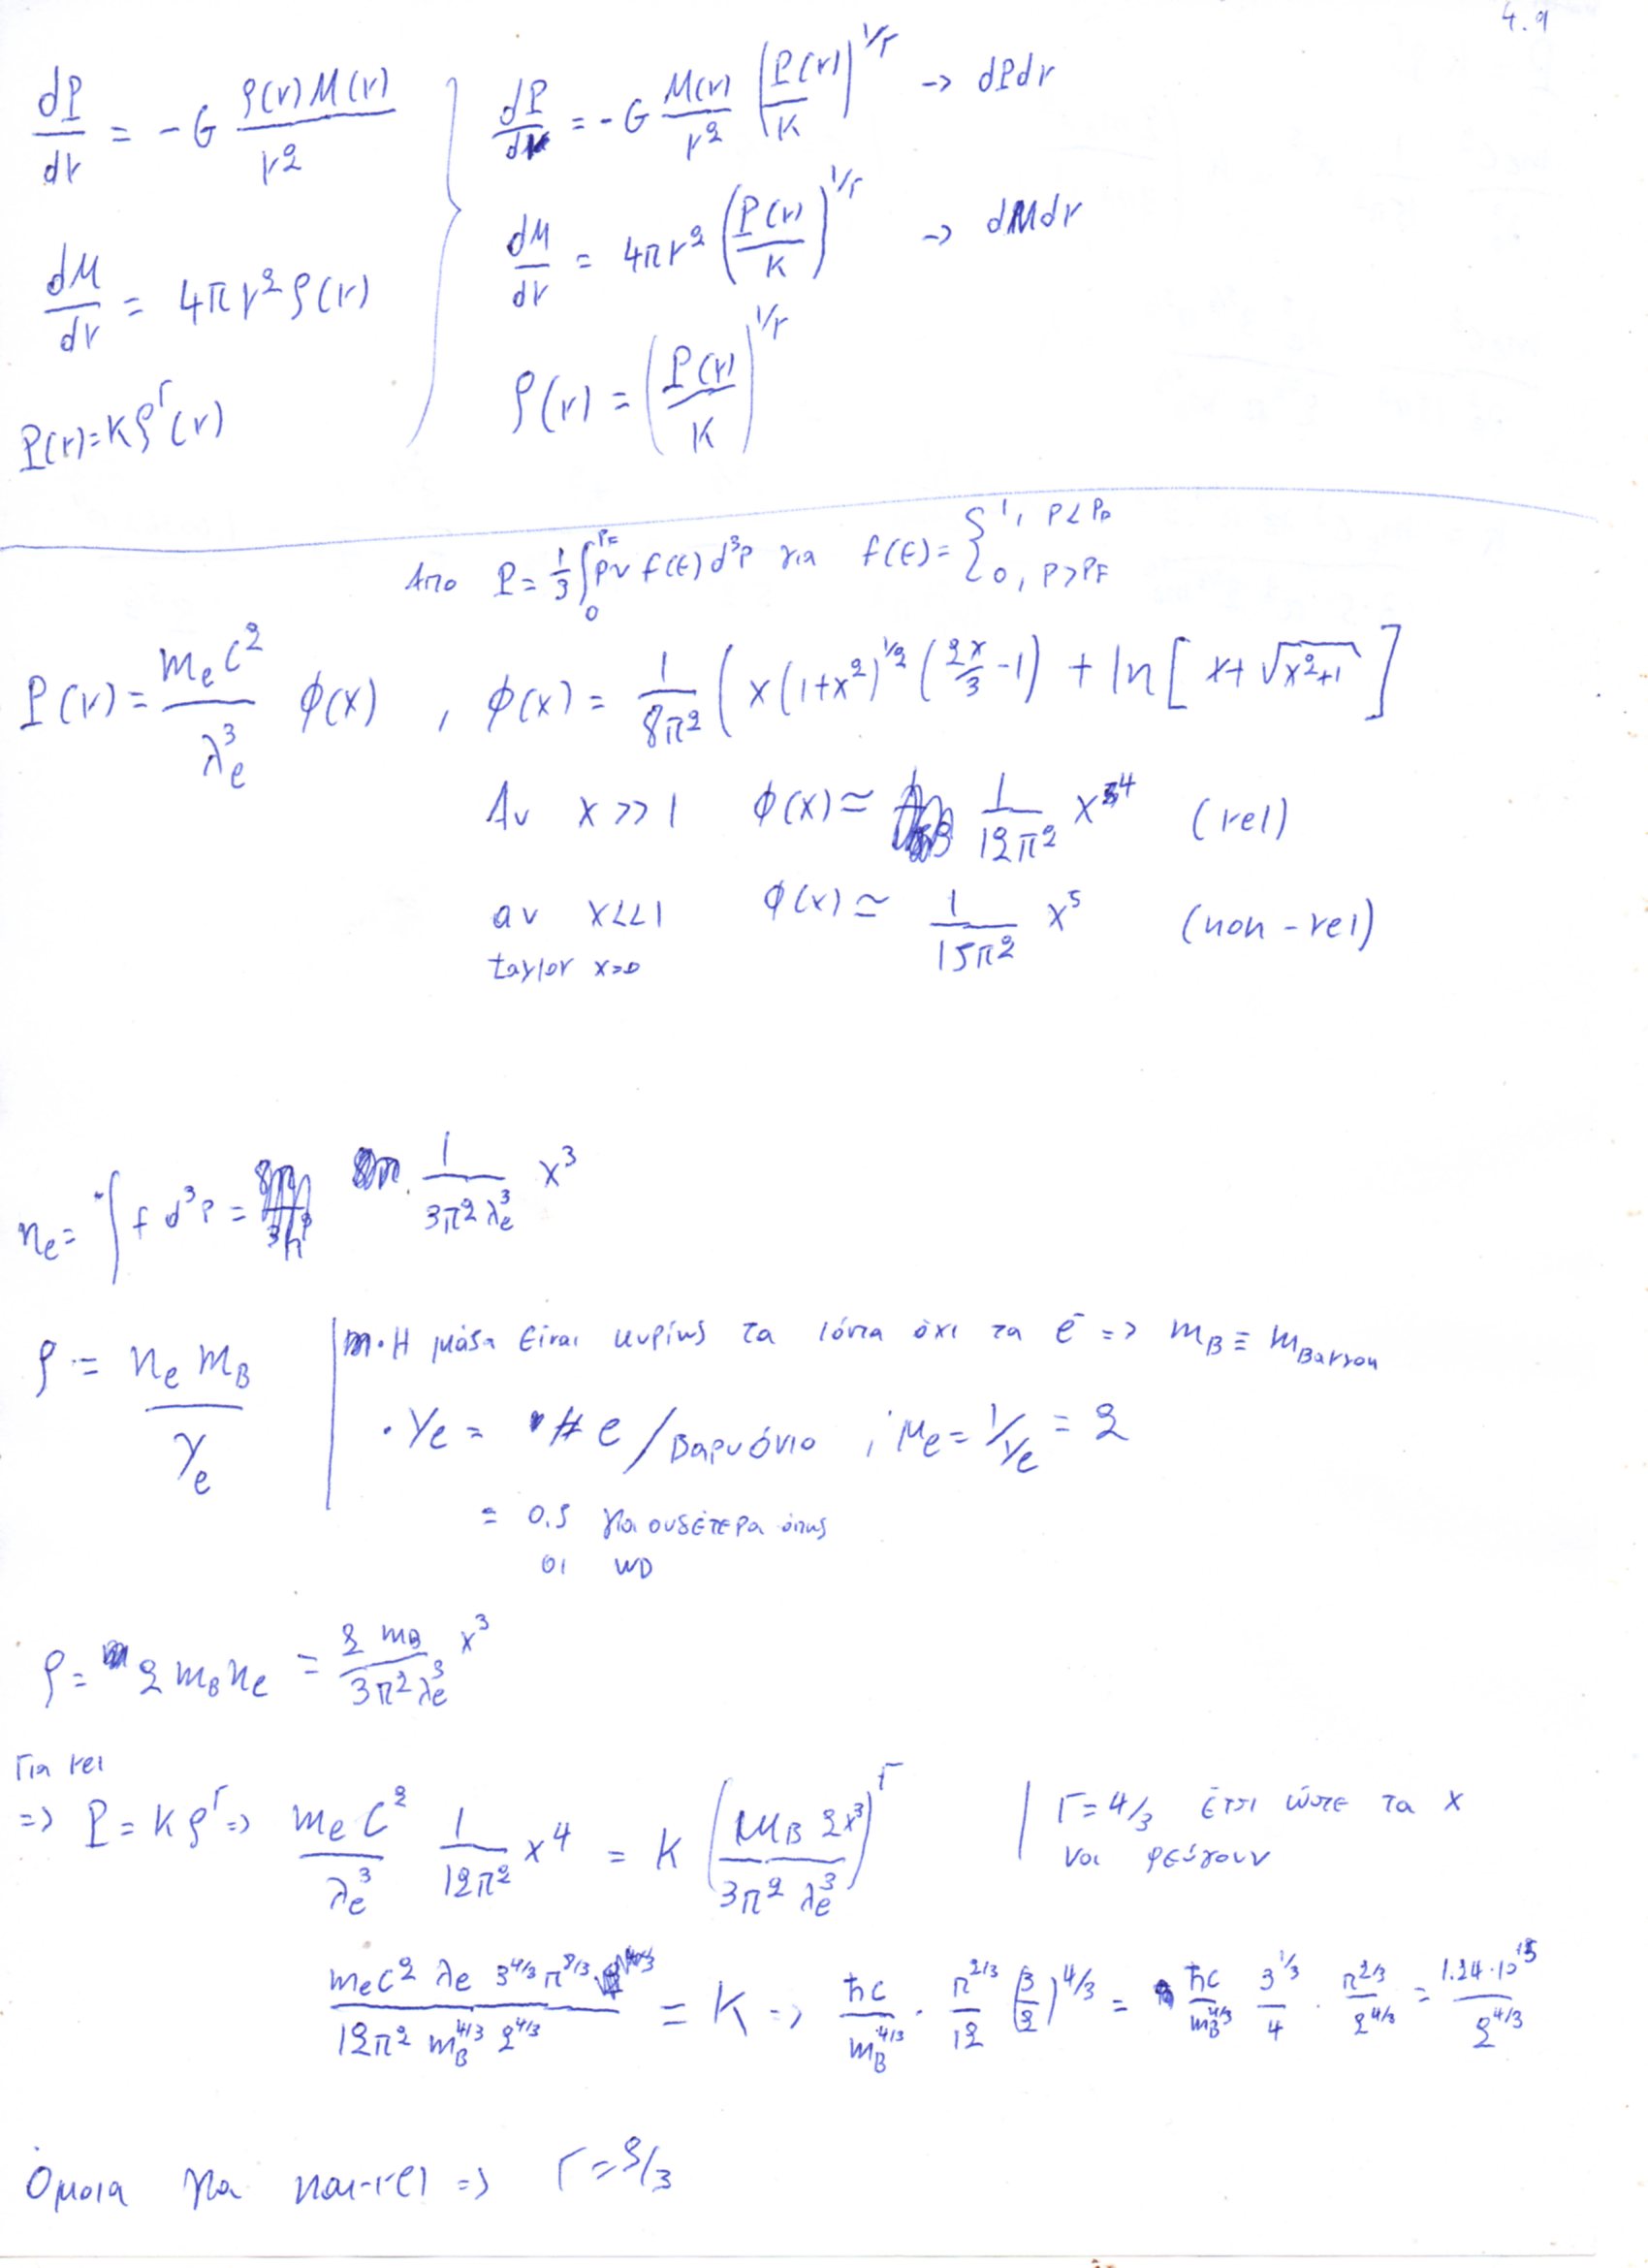 4.9
dP/dr = -G ρ(r)M(r)/r²
dP/dr = -G M(r)/r² (P(r)/K)^{1/Γ} -> dPdr
dM/dr = 4πr²ρ(r)
dM/dr = 4πr² (P(r)/K)^{1/Γ} -> dMdr
P(r)=Kρ^Γ(r)
ρ(r) = (P(r)/K)^{1/Γ}
Απο P = 1/3 ∫_0^{PF} pv f(ε) d³p για f(ε) = { 1, P<P_F
0, P>PF
P(r) = m_e c²/λ_e³ φ(x) , φ(x) = 1/8π² ( x(1+x²)^{1/2} (2x/3 -1) + ln[ x+√x²+1 ]
Αν x>>1 φ(x) ≃ 1/12π² x⁴ (rel)
αν x<<1 φ(x) ≃ 1/15π² x⁵ (non-rel)
taylor x=0
n_e = ∫ f d³p = 1/3π²λ_e³ x³
ρ = n_e m_B / Y_e
• Η μάζα είναι κυρίως τα ιόντα όχι τα e⁻ => m_B ≡ m_Baryon
• Ye = # e / Βαρυόνιο , μ_e = 1/Ye = 2
= 0.5 για ουδέτερα όπως
οι WD
ρ = 2 m_B n_e = 2 m_B/3π²λ_e³ x³
Για rel
=> P = Kρ^Γ => m_e c²/λ_e³ 1/12π² x⁴ = K (m_B 2x³/3π² λ_e³)^Γ | Γ=4/3 έτσι ώστε τα x
να φεύγουν
m_e c² λ_e 3^{4/3} π^{8/3} / 12π² m_B^{4/3} 2^{4/3} = K => ħc/m_B^{4/3} · π^{2/3}/12 (3/2)^{4/3} = ħc/m_B^{4/3} 3^{1/3}/4 · π^{2/3}/2^{4/3} = 1.24·10^{15}/2^{4/3}
Όμοια για non-rel => Γ=5/3